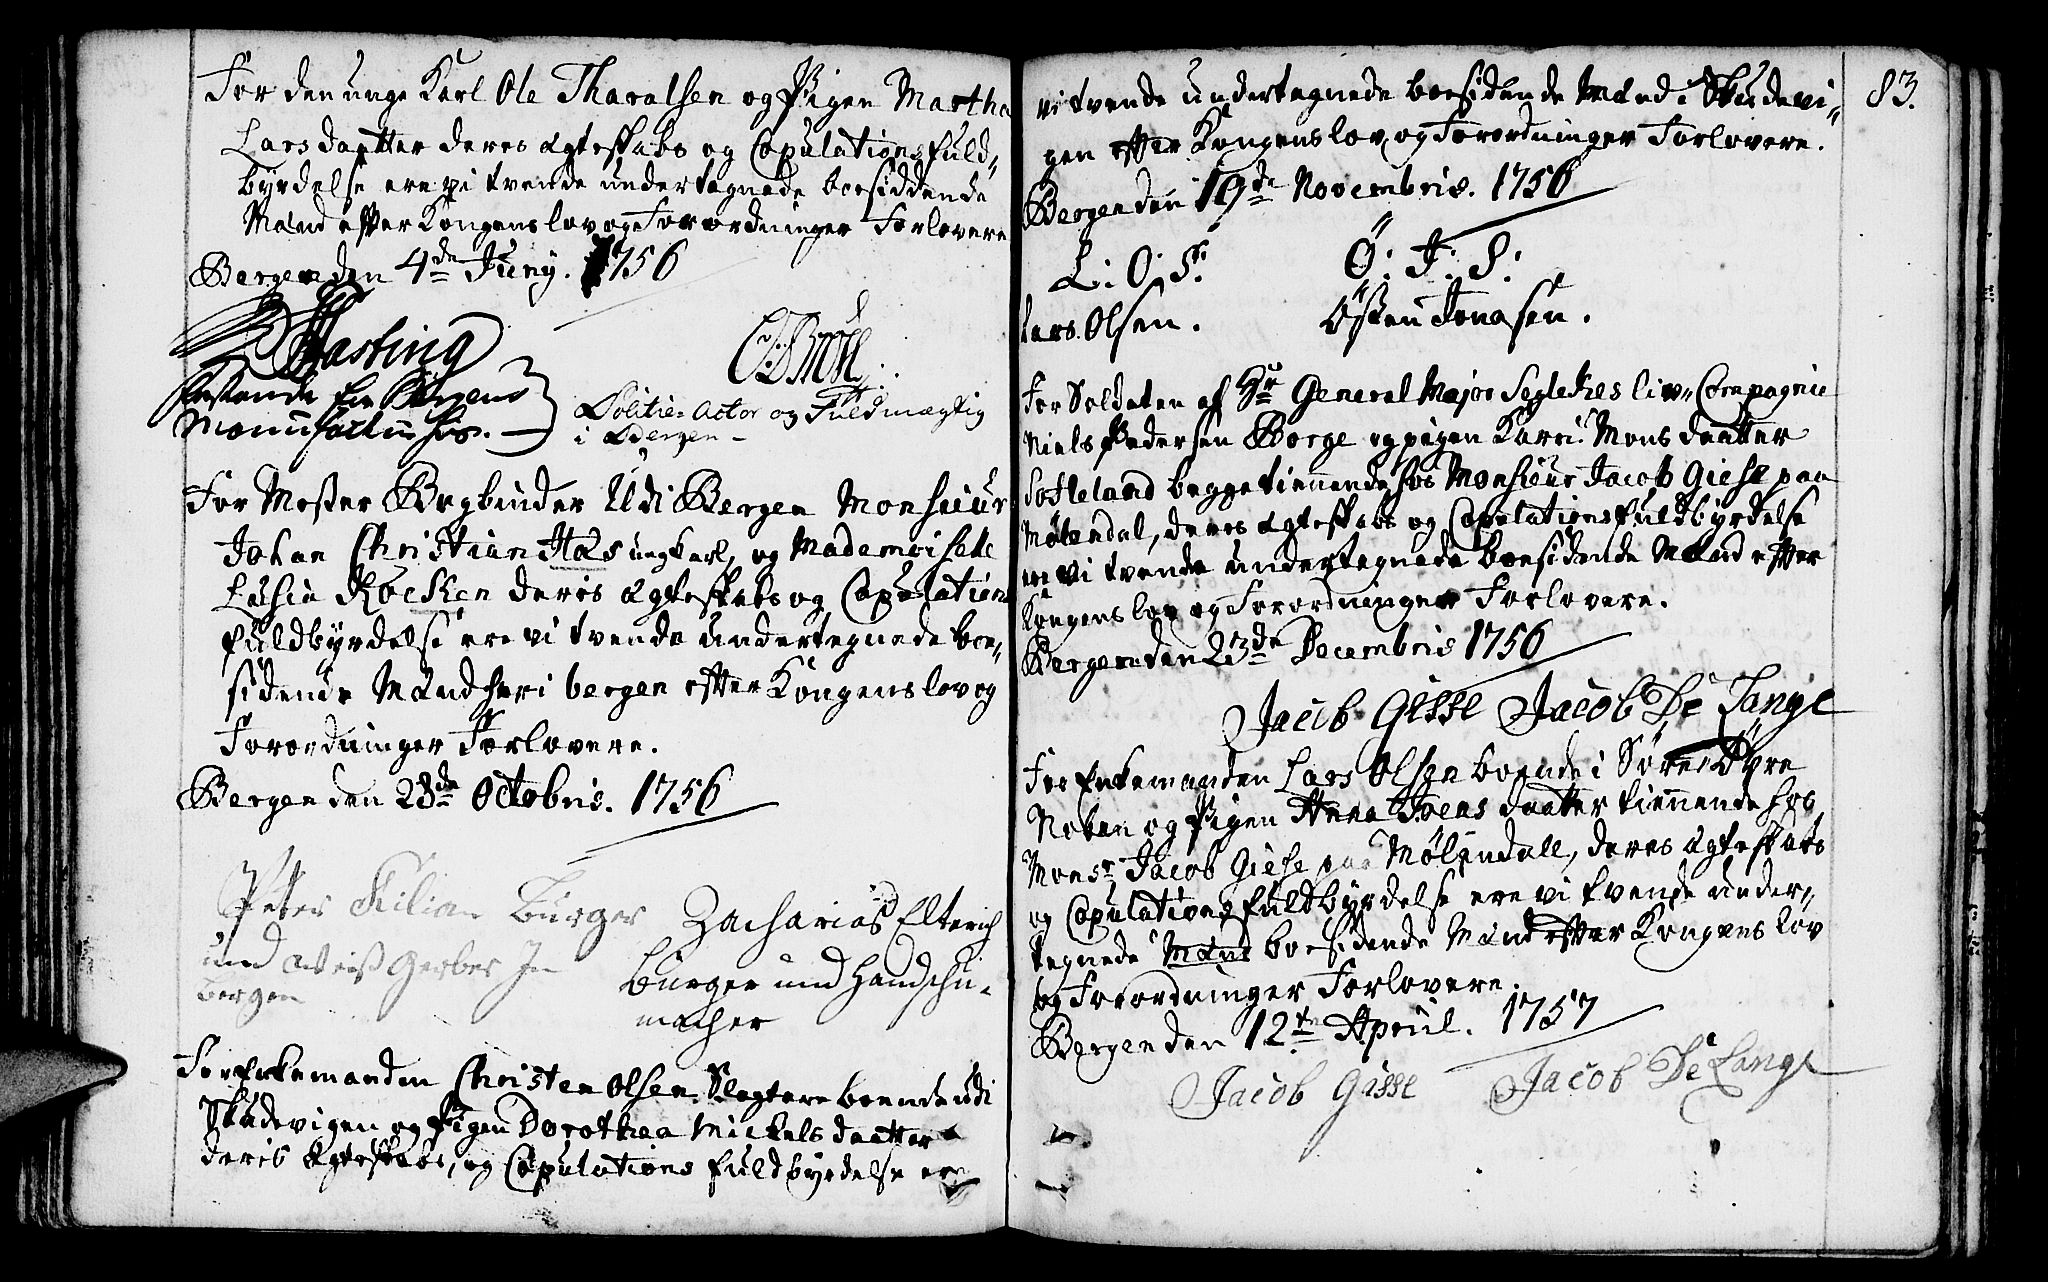 For den unge Karl Ole Tharalsen og Pigen Martha
Larsdaatter deres Ægteskabs og Copulations fuld-
byrdelse ere vi tvende undertegnede boesiddende
Mænd efter Kongens lov og Forordninger Forlovere
Bergen den 4de Juny. 1756
Hasting
Bergens
Manufactur huus.
Politie Actor og Fuldmægtig
i Bergen
For Mester Bogbinder Udi Bergen Monsieur
Johan Christian Has ungkarl, og Mademoiselle
Lusia Röecken deris Ægteskabs og Copulations
fuldbyrdelse ere vi tvende undertegnede boe-
sidende Mænd her i bergen efter Kongens lov og
Forordninger Forlovere.
Bergen den 28de Octobris. 1756
Peter Kilian Bürger
und Weiß Gerber In
Bergen
Zacharias Elterich
Burger und Handschu-
macher
For Enkemanden Christen Olsen Slagtere boende udi
Skudevigen og Pigen Dorothea Mickels daatter
deris Ægteskabs, og Copulations fuldbyrdelse ere
83.
vi tvende undertegnede boesidende Mænd i Skudevi-
gen efter Kongens lov og Forordninger Forlovere.
Bergen den 19de Novembris. 1756
L: O: S:
Ö: J: S:
Lars Olsen.
Östen Jonasen.
For Soldaten af Hr General Major Segletzes liv Compagnie
Niels Pedersen Borge og pigen Kari Mons daatter
Softeland begge tienende hos Monsieur Jacob Giese paa
Mølendal, deres Ægteskabs og Copulations fuldbyrdelse
ere vi tvende undertegnede boesidende Mænd efter
Kongens lov og Forordninger Forlovere.
Bergen den 23de Decembris 1756
Jacob Giesse Jacob De Lange
For Enkemanden Lars Olsen boende i Søre Dyre
Noten og Pigen Anna Joens daatter tienende hos
Monsr Jacob Giese paa Mølendall, deres Ægteskabs
og Copulations fuldbyrdelse ere vi tvende under-
tegnede Mænd boesidende Mænd efter Kongens lov
og Forordninger Forlovere.
Bergen den 12t Apriil. 1757
Jacob Giesse Jacob De Lange